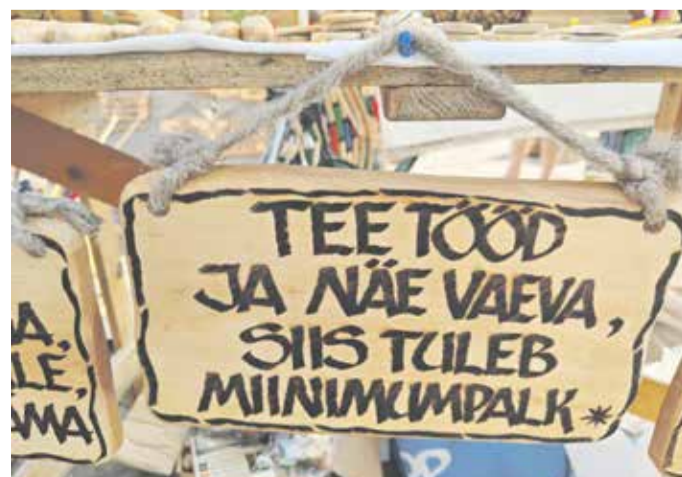 TEE TÖÖD
JA NÄE VAEVA,
SIIS TULEB
MIINIMUMPALK*
A,
LE,
AMA